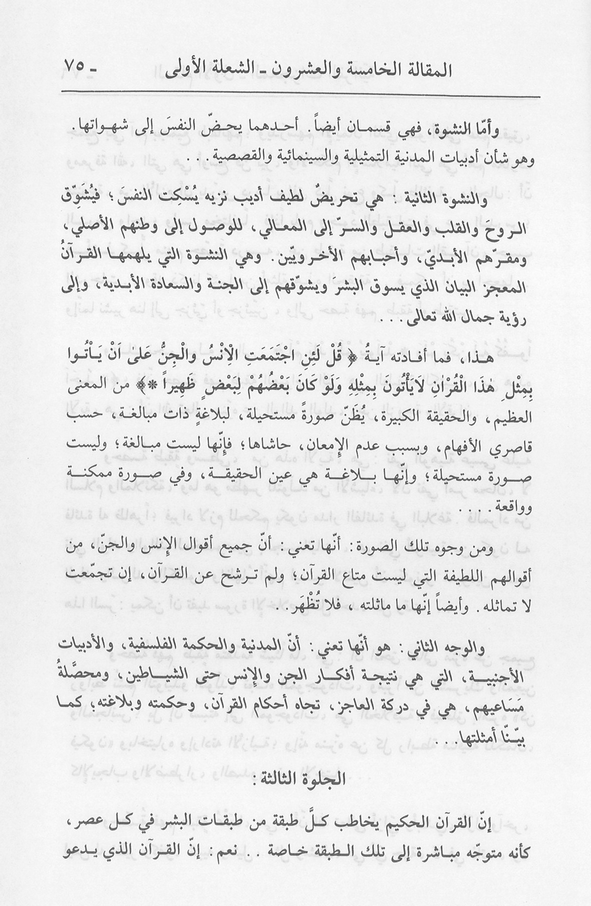 المقالة الخامسة والعشرون ـ الشعلة الأولى ـ ٧٥
وأمّا النشوة، فهي قسمان أيضاً. أحدهما يحضّ النفسَ إلى شهواتها.
وهو شأن أدبيات المدنية التمثيلية والسينمائية والقصصية...
والنشوة الثانية : هي تحريضٌ لطيف أديب نزيه يُسْكِت النفسَ ؛ فيُشوِّق
الروحَ والقلب والعقل والسرّ إلى المعالي، للوصول إلى وطنهم الأصلي،
ومقرّهم الأبديّ، وأحبابهم الأخرويّين. وهي النشوة التي يلهمها القرآنُ
المعجز البيان الذي يسوق البشرَ ويشوّقهم إلى الجنة والسعادة الأبدية، وإلى
رؤية جمال الله تعالى...
هـذا، فما أفـادته آيـةُ ﴿ قُلْ لَئِنِ اجْتَمَعَتِ الْاِنْسُ وَالْجِنُّ عَلىٰ اَنْ يَأْتُوا
بِمِثْلِ هٰذَا الْقُرْاٰنِ لَايَأْتُونَ بِمِثْلِهِ وَلَوْ كَانَ بَعْضُهُمْ لِبَعْضٍ ظَهِيراً ٭﴾ من المعنى
العظيم، والحقيقة الكبيرة، يُظَنّ صورةً مستحيلة، لبلاغةٍ ذات مبالغـة، حسب
قاصري الأفهام، وبسبب عدم الإمعان، حاشاها؛ فإنّها ليست مبـالغة؛ وليست
صـورة مستحيلة؛ وإنّهـا بـلاغـة هي عين الحقيقـة، وفي صـورة ممكنـة
وواقعة....
ومن وجوه تلك الصورة: أنّها تعني: أنّ جميع أقوال الإنس والجنّ، من
أقوالهم اللطيفة التي ليست متاع القرآن؛ ولم ترشح عن القرآن، إن تجمّعت
لا تماثله. وأيضاً إنّها ما ماثلته ، فلا تُظْهَر...
والوجه الثاني: هو أنّها تعني: أنّ المدنية والحكمة الفلسفية، والأدبيات
الأجنبيـة، التي هي نتيجـة أفكـار الجن والإنس حتى الشيـاطين، ومحصَّلةُ
مَسَاعيهم، هي في دركة العاجز، تجاه أحكام القرآن، وحكمته وبلاغته؛ كمـا
بيّـنّا أمثلتها...
الجلوة الثالثة:
إنّ القرآن الحكيم يخاطب كـلَّ طبقة من طبقـات البشر في كـل عصر،
كأنه متوجّه مباشرة إلى تلك الطبقة خاصة .. نعم: إنّ القرآن الذي يـدعو